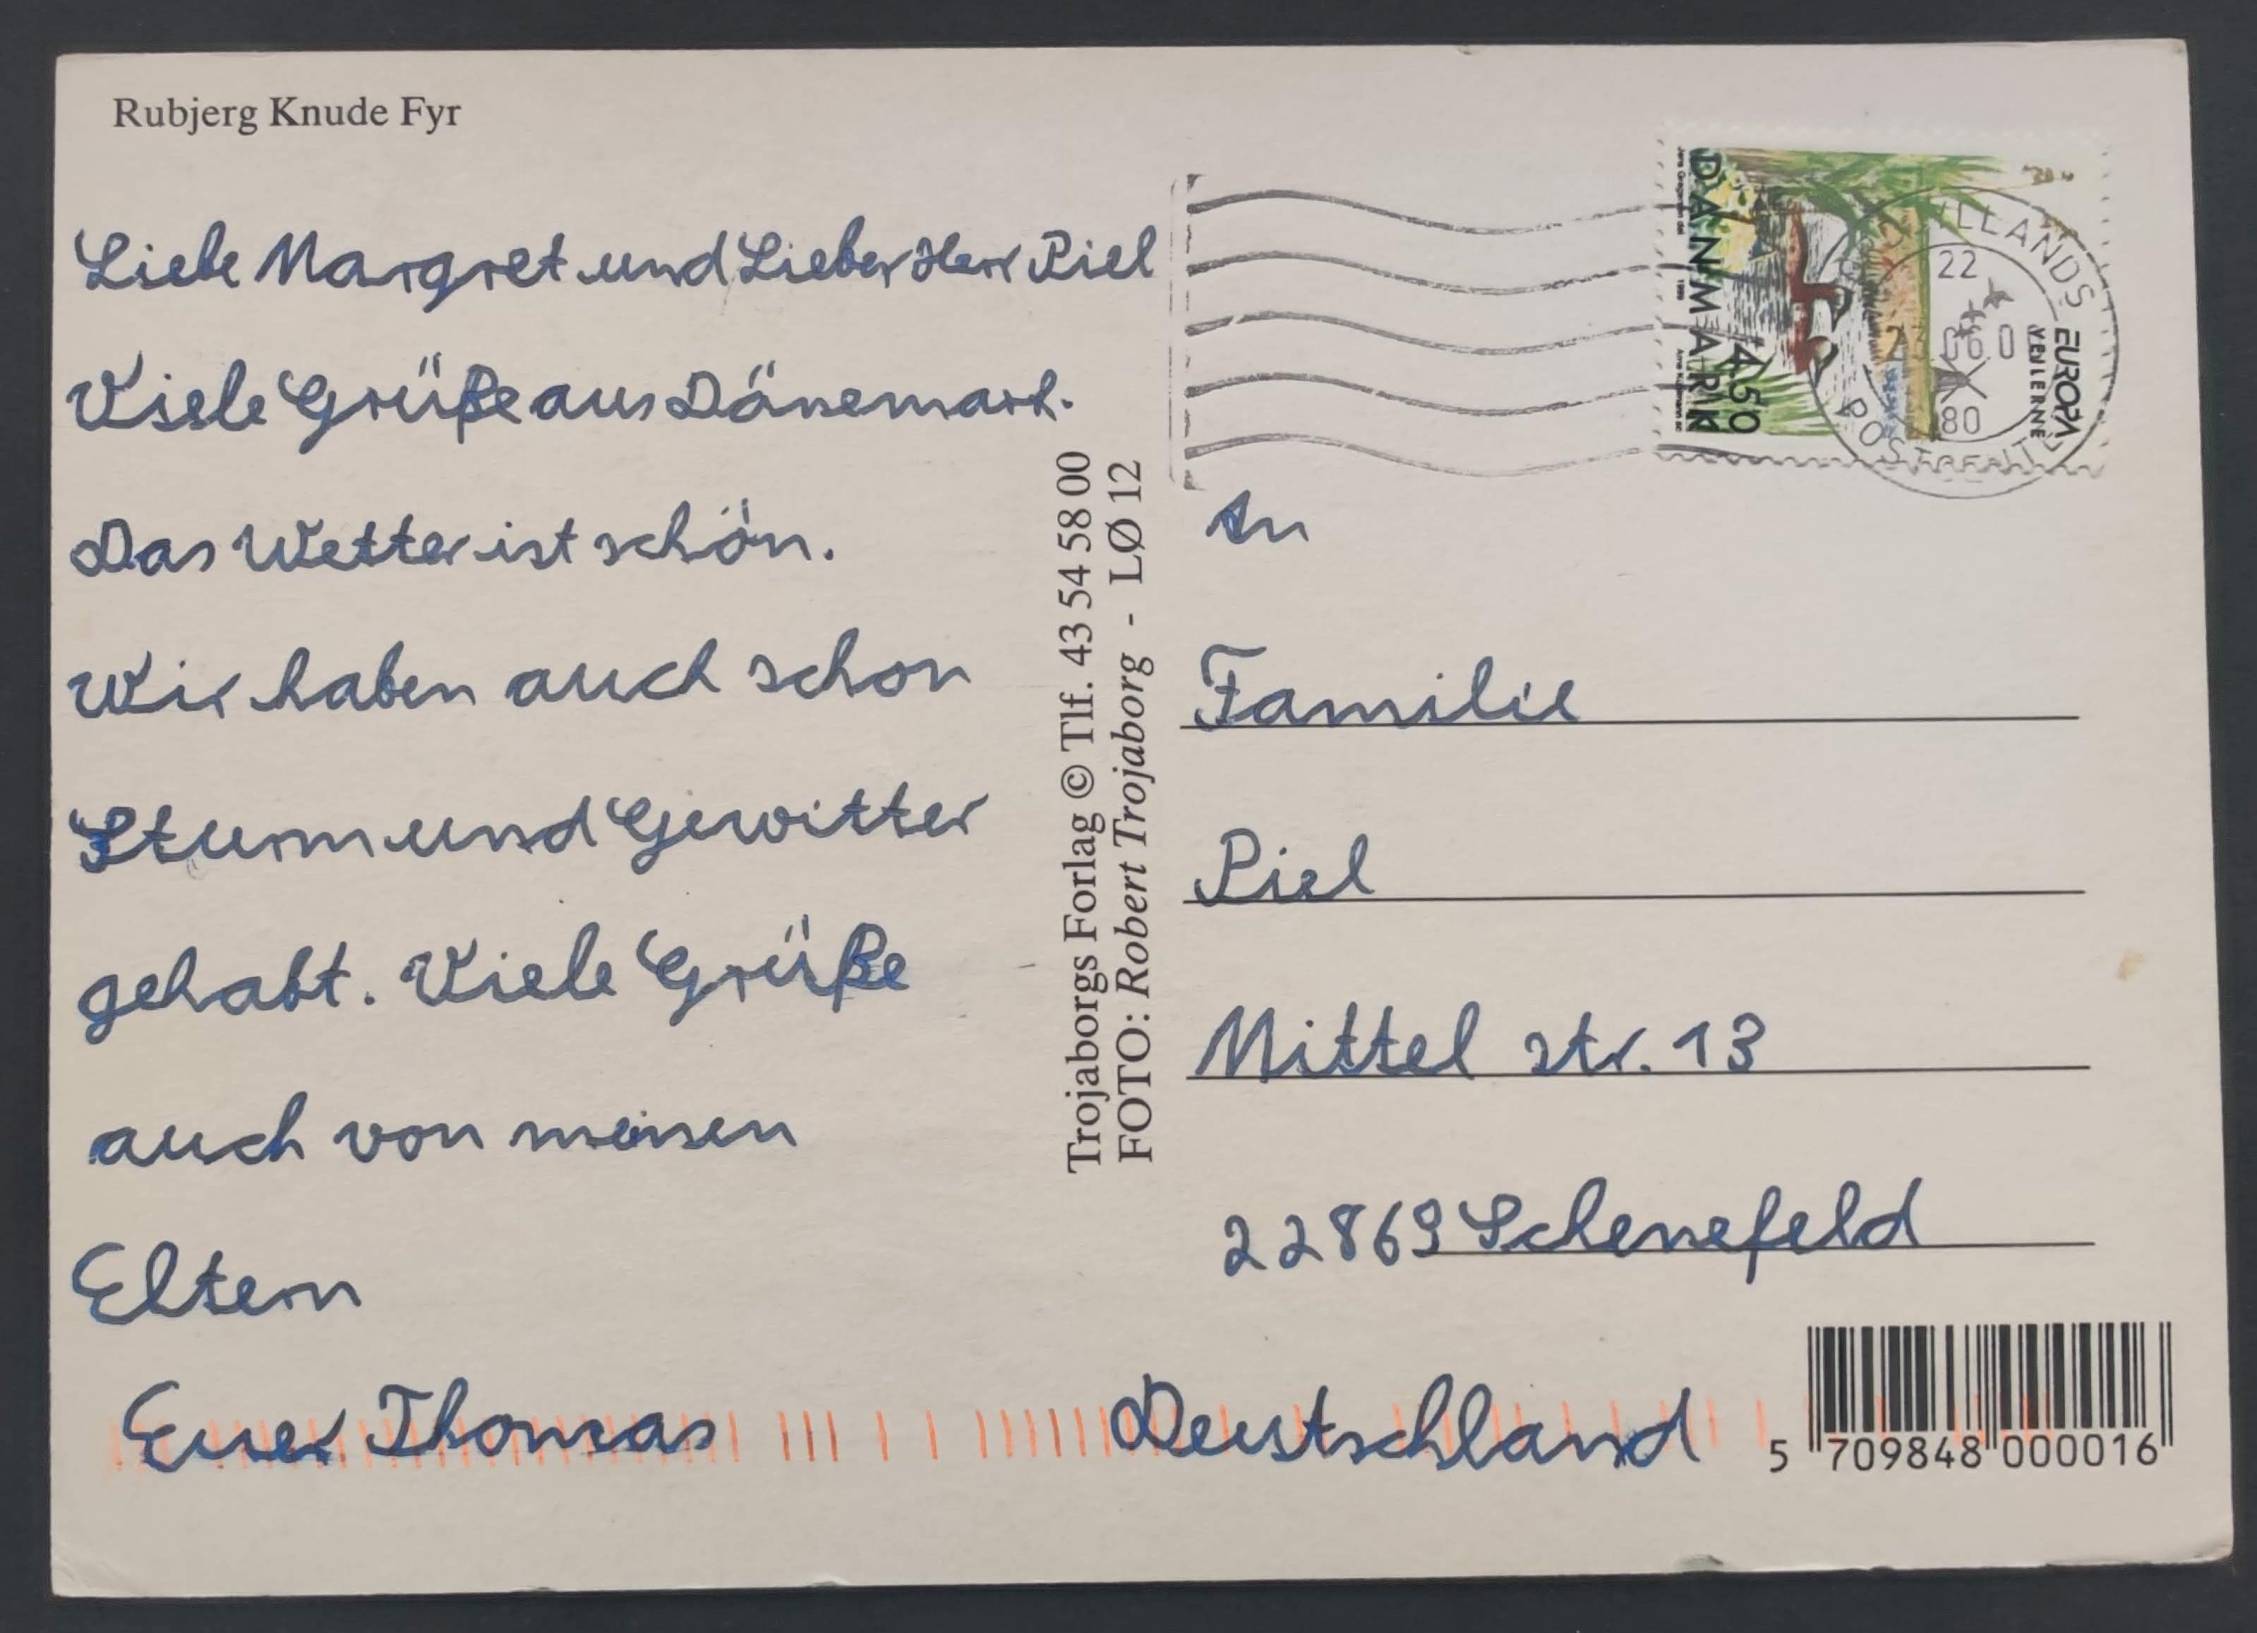 Rubjerg Knude Fyr
Liebe Margret und Lieber Herr Piel
Viele Grüße aus Dänemark.
Das Wetter ist schön.
Wir haben auch schon
Sturm und Gewitter
gehabt. Viele Grüße
auch von meinen
Eltern
Euer Thomas
Trojaborgs Forlag © Tlf. 43 54 58 00
FOTO: Robert Trojaborg - LØ 12
DANMARK
4.50
EUROPA
VEJLERNE
22
80
An
Familie
Piel
Mittel str. 13
22869 Schenefeld
Deutschland
5 709848 000016